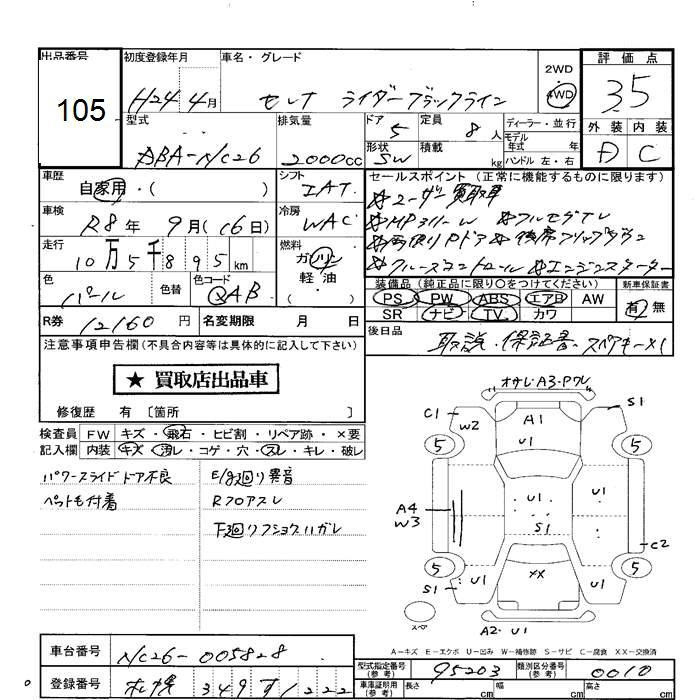 出品番号 初度登録年月 車名・グレード 2WD 4WD 評価点
105 H24年4月 セレナ ライダーブラックライン 35
型式 排気量 ドア 5 定員 8人 ディーラー・並行 外装 内装
ABA-NC26 2000cc 形状 SW 積載 kg モデル年式 年 ハンドル 左・右 D C
車歴 自家用・( ) シフト IAT セールスポイント (正常に機能するものに限ります)
車検 R8年 9月(6日) 冷房 WAC ☆ユーザー買取車
☆MP311-W ☆フルセグTV
走行 10万5千895km 燃料 ガソリン 軽油 ☆両側PドA ☆後席フリップダウン
☆クルーズコントロール ☆エンジンスターター
色 パール 色替 色コード QAB 装備品 (純正品に限り○をつけてください) 新車保証書
PS PW ABS エアB AW 有・無
R券 12160円 名変期限 月 日 SR ナビ TV カワ
注意事項申告欄(不具合内容等は具体的に記入して下さい) 後日品 取説・保証書・スペアキー×1
★ 買取店出品車
修復歴 有〔箇所 〕
検査員 FW キズ・飛石・ヒビ割・リペア跡・×要
記入欄 内装 キズ・汚レ・コゲ・穴・スレ・キレ・破レ
パワースライドドア不良 E/g廻り異音
ペット毛付着 R フロアスレ
下廻リフショクハガレ
オサレ・A3・Pワレ
C1 W2 A1 S1
5 U1 5
U1 U1
A4 W3 S1
C2
5 XX 5
S1 U1 U1
スペ A2・U1
A－キズ E－エクボ U－凹み W－補修跡 S－サビ C－腐食 XX－交換済
車台番号 NC26-005828
型式指定番号(参考) 95203 類別区分番号(参考) 0010
登録番号 札幌 349 す1222
車庫証明用(参考) 長さ cm 幅 cm 高さ cm